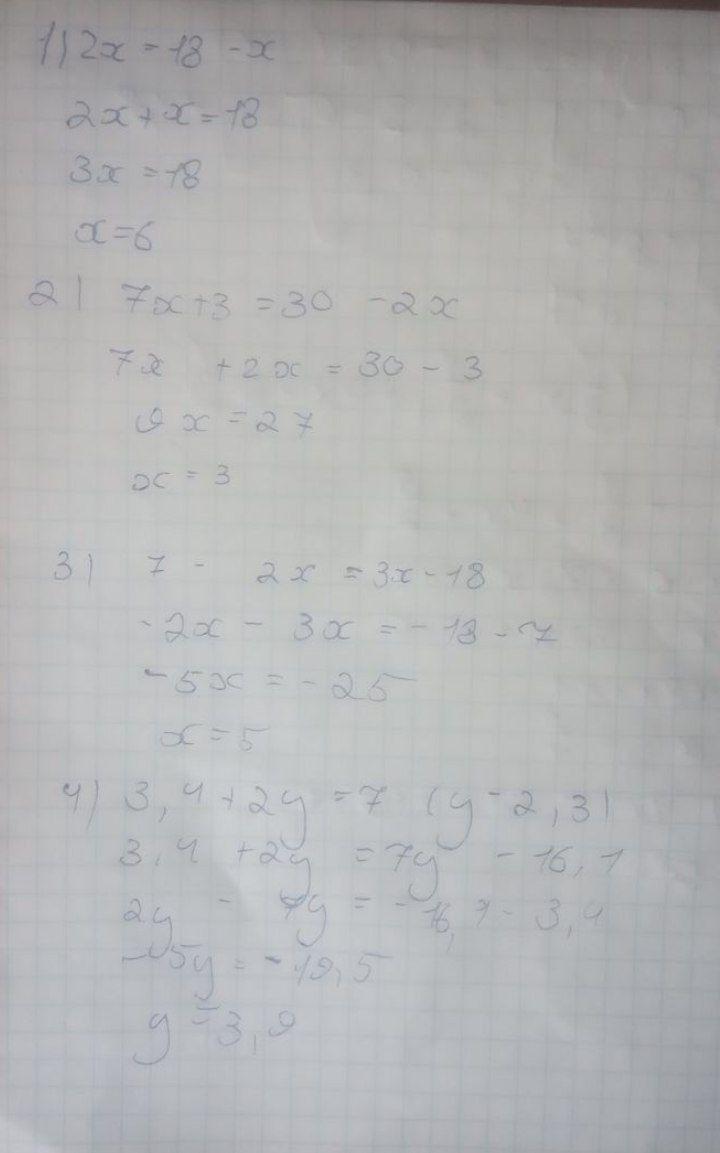 1) 2x = 18 - x
2x + x = 18
3x = 18
x = 6
2) 7x + 3 = 30 - 2x
7x + 2x = 30 - 3
9x = 27
x = 3
3) 7 - 2x = 3x - 18
-2x - 3x = -18 - 7
-5x = -25
x = 5
4) 3,4 + 2y = 7 (y - 2,3)
3,4 + 2y = 7y - 16,1
2y - 7y = -16,1 - 3,4
-5y = -19,5
y = 3,9